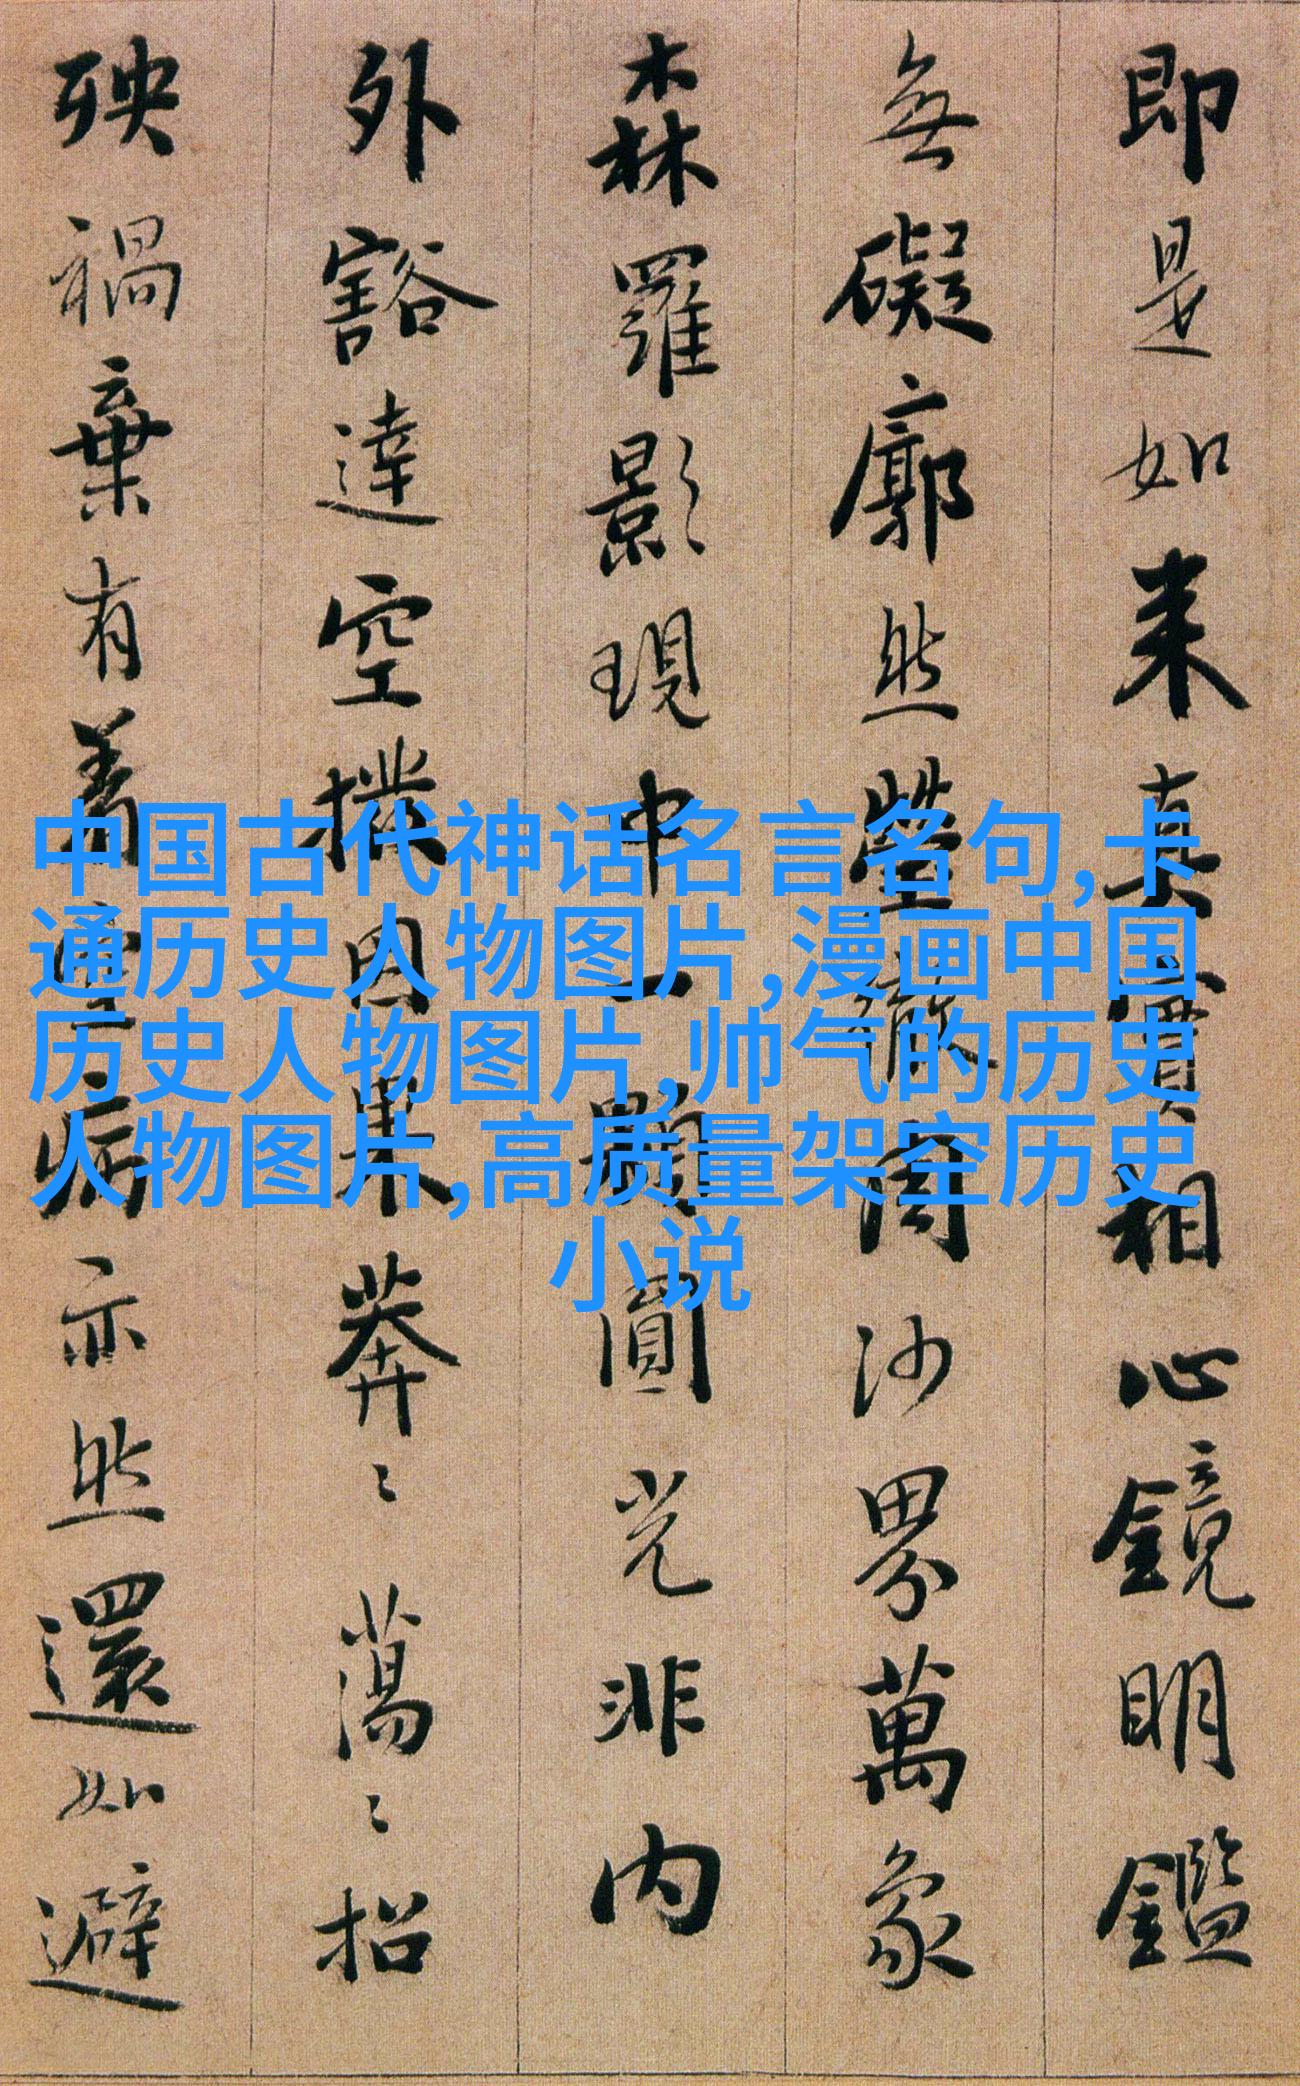 即是如来真實相心鏡明鑑
無礙廓然瑩徹周沙界萬象
森羅影現中一顆圓光非内
外豁達空撥因果莽〻蕩〻招
殃禍棄有著空病亦然還如避
中国古代神话名言名句,卡
通历史人物图片,漫画中国
历史人物图片,帅气的历史
人物图片,高质量架空历史
小说